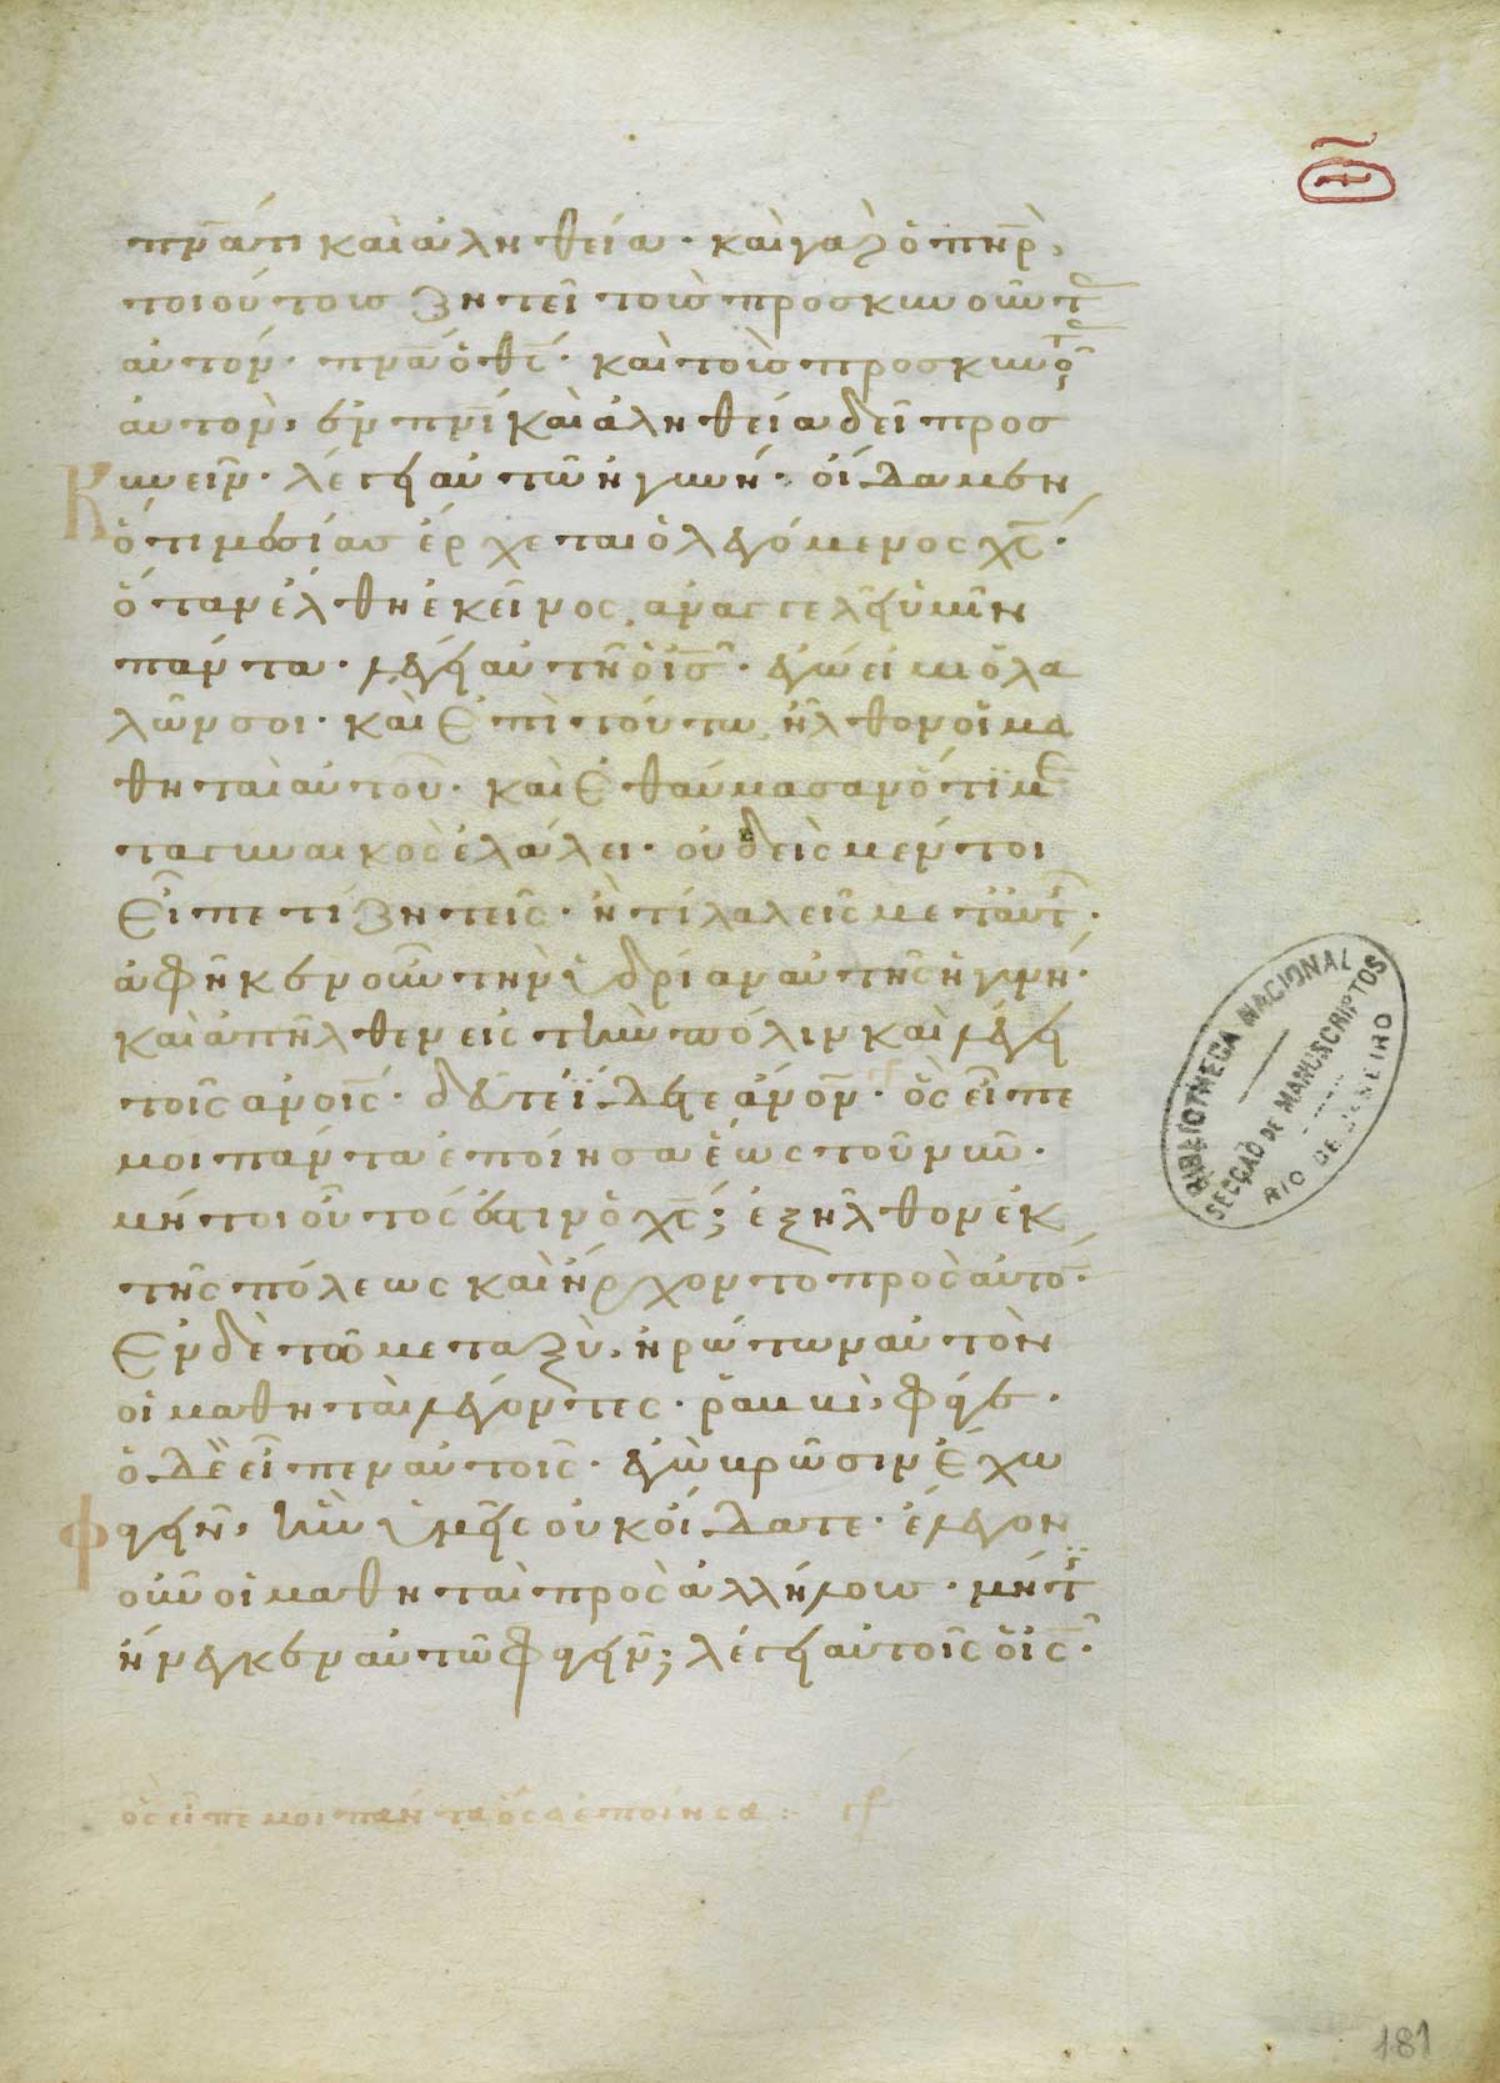 πν̅ατι καὶ ἀληθεία· καὶ γὰρ ὁ πη̅ρ,
τοιούτους ζητεῖ τοὺς προσκυνοῦντ
αὐτόν· πν̅α ὁ θς̅· καὶ τοὺς προσκυνο
αὐτὸν, ἐν πν̅ι καὶ ἀληθεία δεῖ προσ
κυνεῖν· λέγει αὐτῶ ἡ γυνή· οἴδαμεν
ὅτι μεσίας ἔρχεται ὁ λεγόμενος χς̅·
ὅταν ἔλθη ἐκεῖνος, ἀναγγελεῖ ὑμῖν
πάντα· λέγει αὐτῆ ὁ ις̅· ἐγώ εἰμι ὁ λα
λῶν σοι· καὶ ἐπὶ τούτω, ἦλθον οἱ μα
θηταὶ αὐτοῦ· καὶ ἐθαύμασαν ὅτι με
τα γυναικὸς ἐλάλει· οὐδεὶς μέντοι
εἶπε τί ζητεῖς· ἢ τί λαλεῖς μετ αὐτ·
ἀφῆκεν οὖν τὴν ὑδρίαν αὐτῆς ἡ γυνή·
καὶ ἀπῆλθεν εἰς τὴν πόλιν καὶ λέγει
τοῖς ἀνοις̅· δεῦτε ἴδετε ἄνον̅· ὃς εἶπέ
μοι πάντα ἐποίησα ἕως τοῦ νῦν·
μήτοι οὗτός ἐστιν ὁ χς̅; ἐξῆλθον ἐκ
τῆς πόλεως καὶ ἤρχοντο πρὸς αὐτό·
Ἐν δὲ τῶ μεταξὺ, ἠρώτων αὐτὸν
οἱ μαθηταὶ λέγοντες· ῥαββὶ, φάγε·
ὁ δὲ εἶπεν αὐτοῖς· ἐγὼ βρῶσιν ἔχω
φαγεῖν, ἣν ὑμεῖς οὐκ οἴδατε· ἔλεγον
οὖν οἱ μαθηταὶ πρὸς ἀλλήλους· μήτι
ἤνεγκεν αὐτῶ φαγεῖν; λέγει αὐτοῖς ὁ ις̅·
ὃς εἶπε μοι πάντα ὅσα ἐποίησα:
BIBLIOTHECA NACIONAL
SECÇÃO DE MANUSCRIPTOS
RIO DE JANEIRO
181